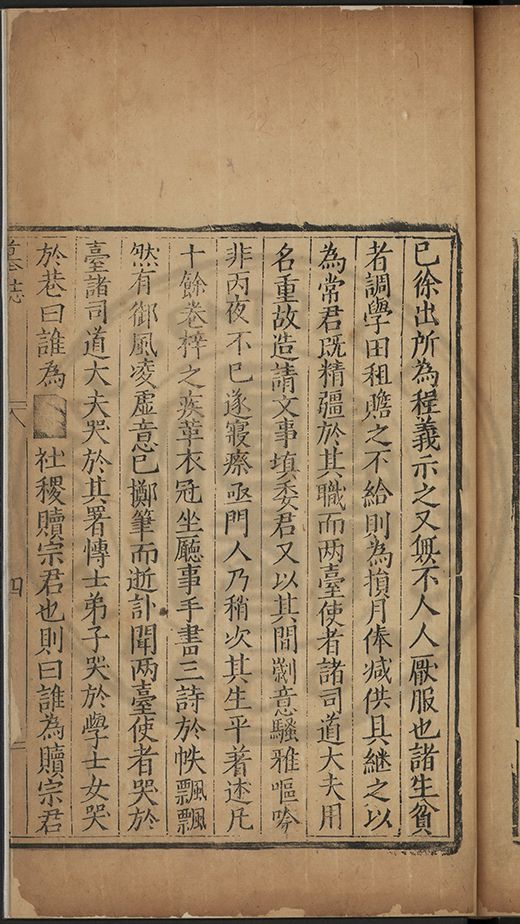 已徐出所為程義示之又無不人人厭服也諸生貧
者調學田租贍之不給則為損月俸减供具継之以
為常君既精彊於其職而两臺使者諸司道大夫用
名重故造請文事填委君又以其間劌意騷雅嘔吟
非丙夜不已遂寢瘵亟門人乃稍次其生平著述凡
十餘卷梓之疾革衣冠坐廳事手書三詩於帙飄飄
然有御風凌虛意已擲筆而逝訃聞两臺使者哭於
臺諸司道大夫哭於其署慱士弟子哭於學士女哭
於巷曰誰為 社稷贖宗君也則曰誰為贖宗君
墓誌 八 四